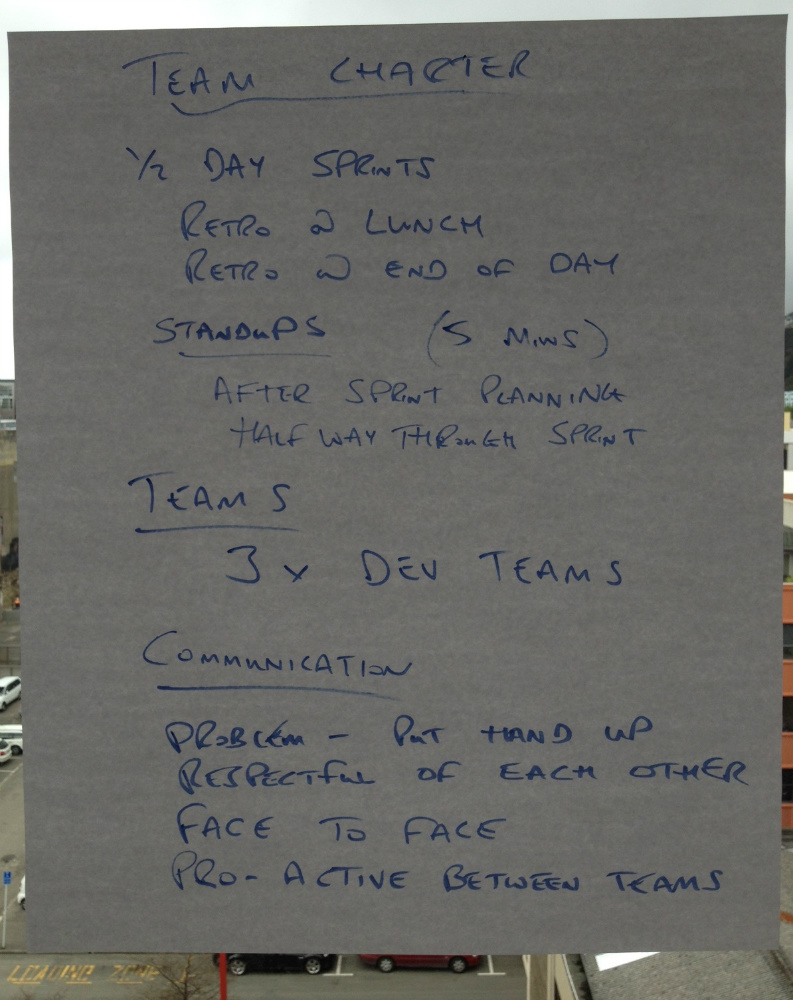 TEAM CHARTER
1/2 DAY SPRINTS
RETRO @ LUNCH
RETRO @ END OF DAY
STANDUPS (5 MINS)
AFTER SPRINT PLANNING
HALF WAY THROUGH SPRINT
TEAMS
3 x DEV TEAMS
COMMUNICATION
PROBLEM - PUT HAND UP
RESPECTFUL OF EACH OTHER
FACE TO FACE
PRO-ACTIVE BETWEEN TEAMS
LOADING ZONE